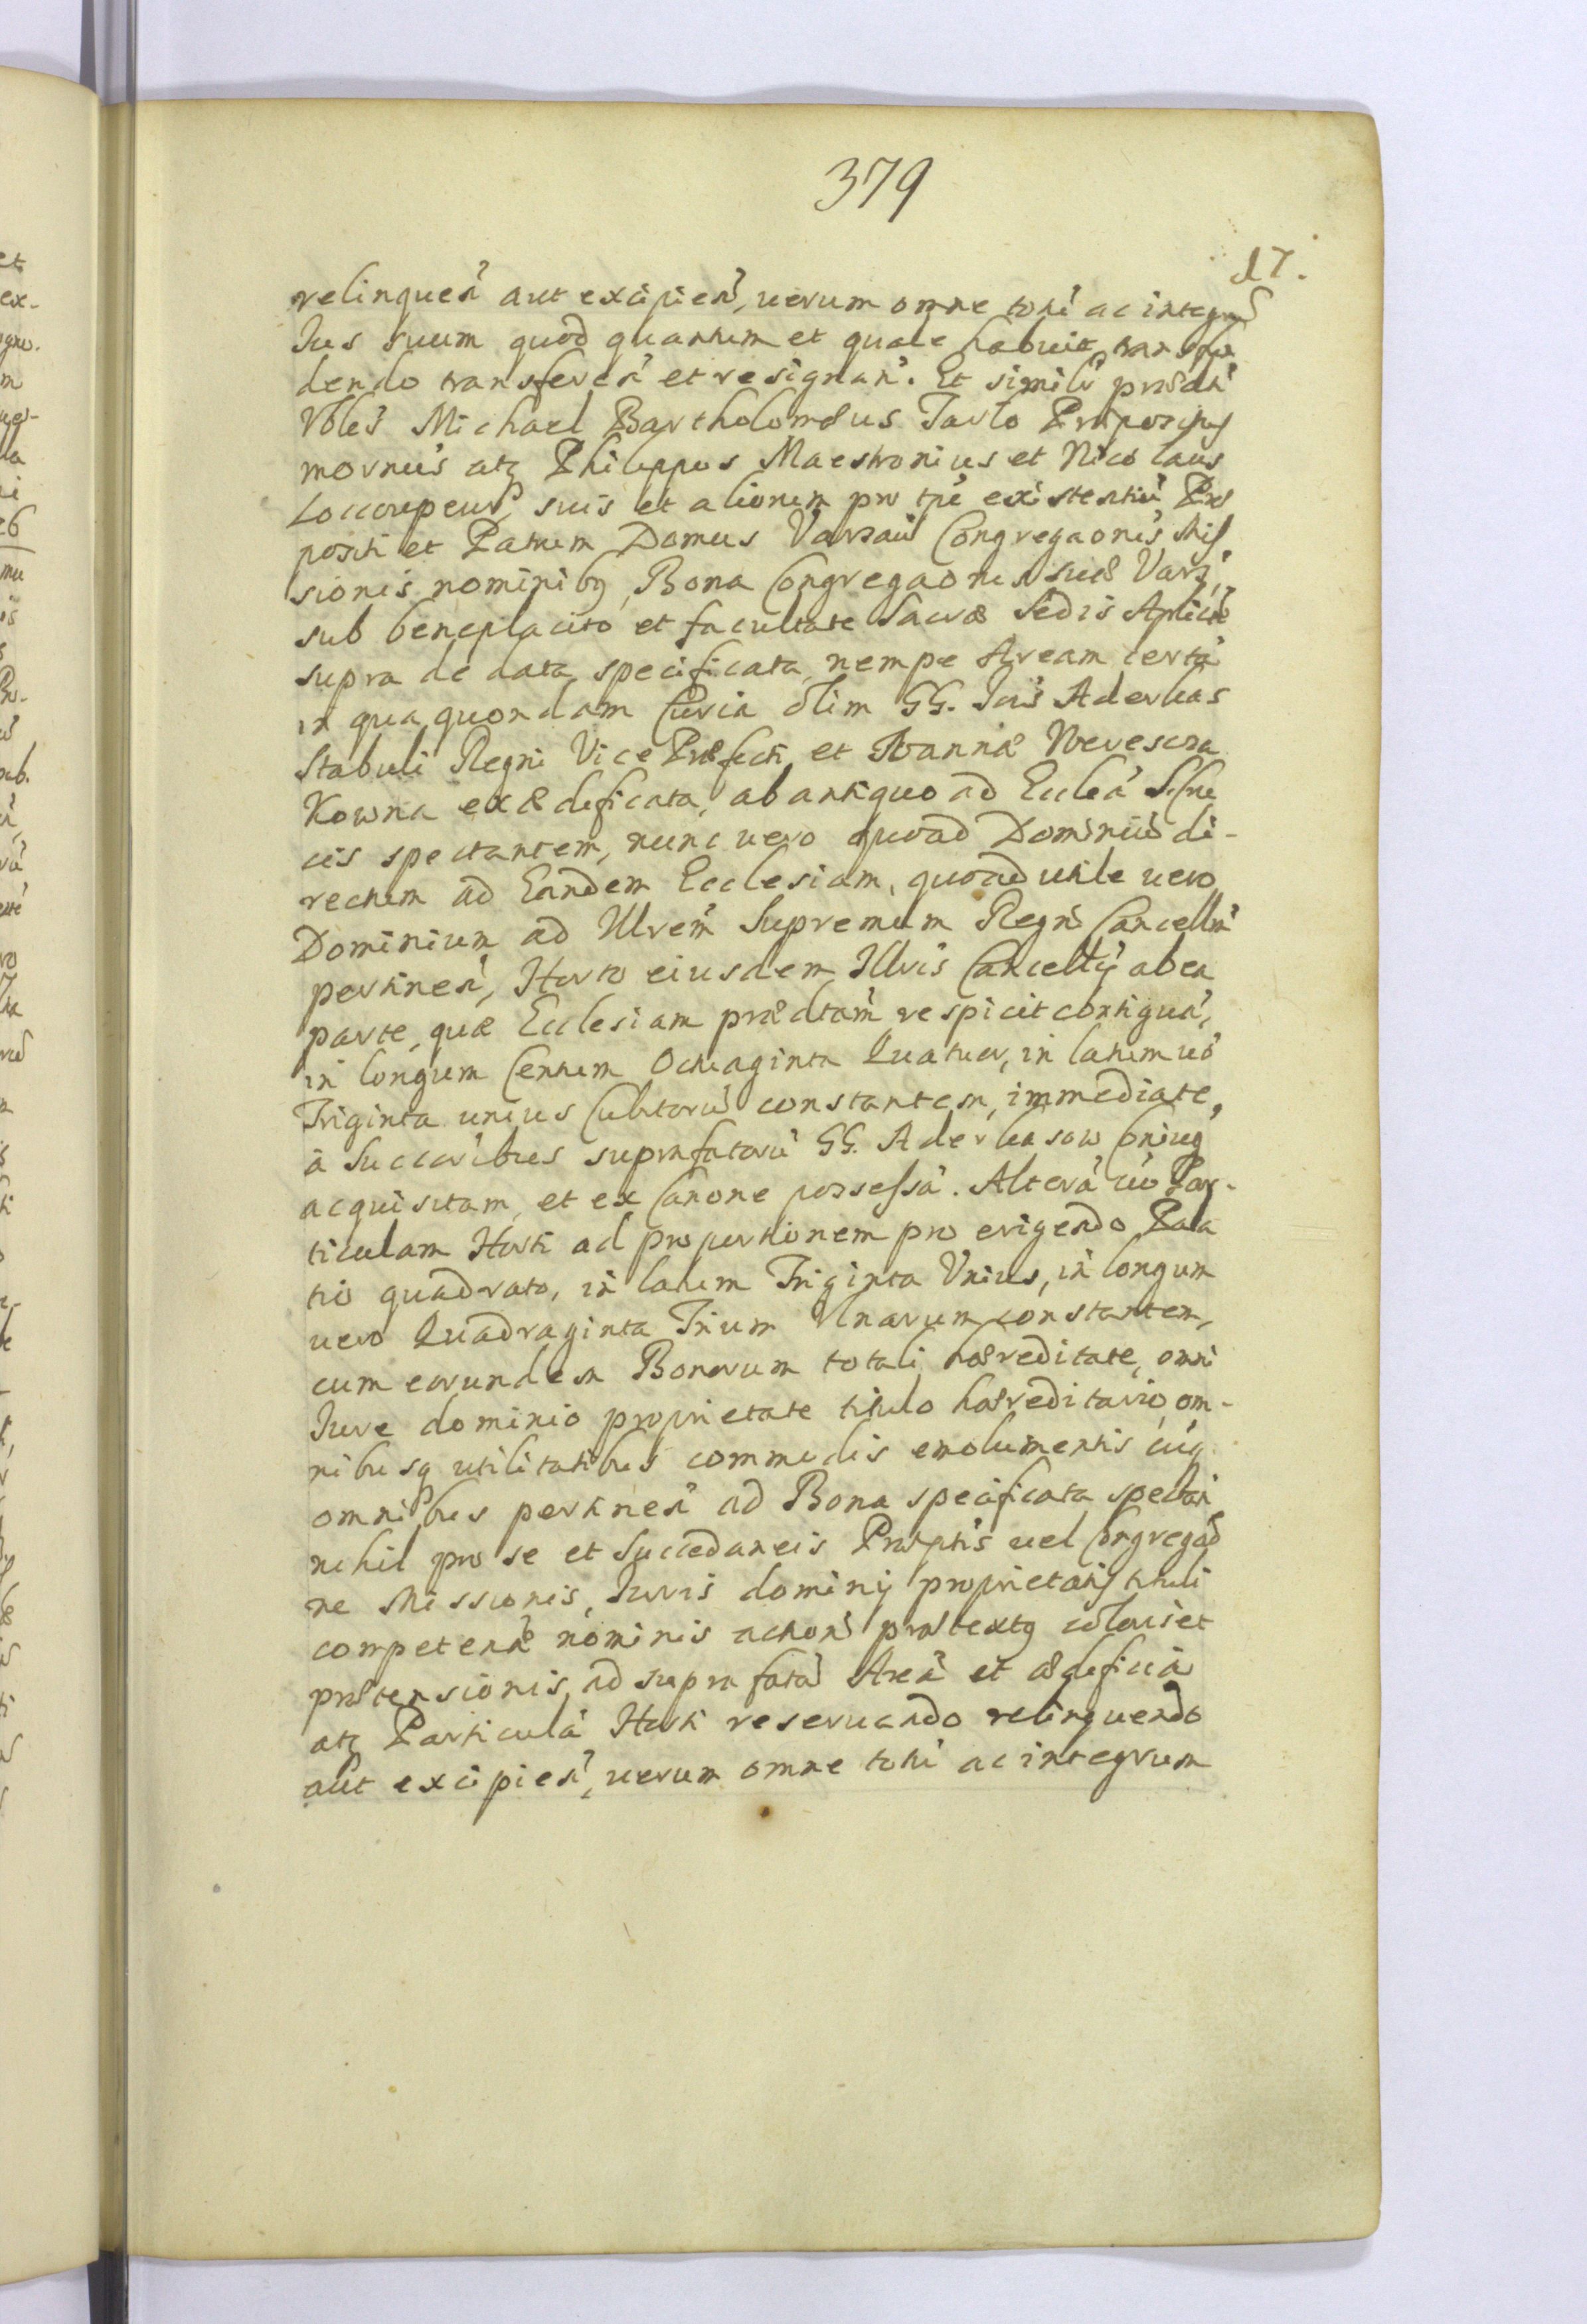 379
17.
relinqueń aut excipień, uerum omne totū ac integrū
Jus suum quod quantum et quale habuit, transfun
dendo transfereń et resignań. Et similr prædti
Vbles Michael Bartholomæus Tarło Præpositus
atq Philippus Maestronius et Nicolaus
suis et aliorum pro tpē existentiū Præ
positi et Patrum Domus Varsaū Congregaonis Mis
sionis nominibq, Bona Congregaonis suæ Vars,
sub beneplacito et facultate Sacræ Sedis Aplicæ
supra de data specificata, nempe Aream certā
in qua quondam Curia olim GG. Jois Aderkas
Stabuli Regni Vice Præfecti et Joannæ Wereszcza
Kowna exædificata, ab antiquo ad Eccleā S Cru
cis spectantem, nunc uero quoad Dominiū di-
rectum ad Eandem Ecclesiam, quoad utile uero
Dominium ad Illrem Supremum Regni Cancellm
pertineń, Horto eiusdem Illris Cancellrij ab ea
parte, quæ Ecclesiam prædtam respicit contiguā,
in longum Centum Octuaginta Quatuor, in latum uō
Triginta unius Cubitorū constantem, immediate,
à Succoribus suprafatorū GG. Aderkasow Coniug
acquisitam, et ex Canone possessā. Alterā uō Par-
ticulam Horti ad proportionem pro erigendo Pala
tio quadrato, in latum Triginta Vnius, in longum
uero Quadraginta Trium Vlnarum constantem,
cum eorundem Bonorum totali hæreditate, omni
Jure dominio proprietate titulo hæreditario, om-
nibusq utilitatibus commodis emolumentis cūq
omnibus pertineń ad Bona specificata spectań
nihil pro se et Succedaneis Præptis uel Congregaō
ne Missionis, Juris dominij proprietatis tituli
competeń nominis actionis prætextq coloris et
prætensionis, ad suprafatā Areā et ædificia
atq Particulā Horti reseruando relinquendo
aut excipień, uerum omne totū ac integrum